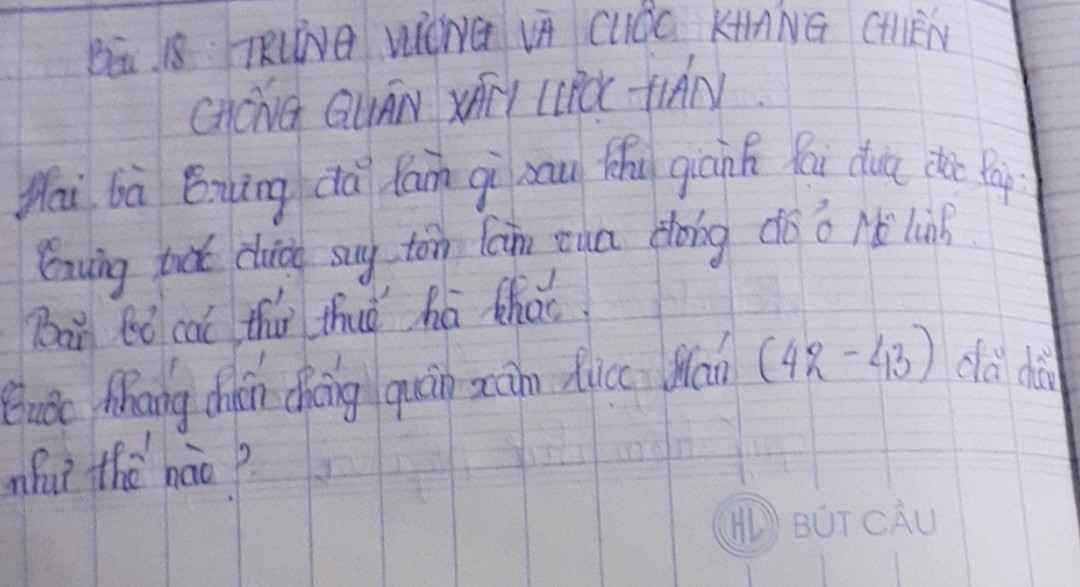 Bài 18: TRƯNG VƯƠNG VÀ CUỘC KHÁNG CHIẾN
CHỐNG QUÂN XÂM LƯỢC HÁN.
Hai bà Trưng đã làm gì sau khi giành lại độc lập:
Trưng trắc được suy tôn làm vua đóng đô ở Mê linh.
Bãi bỏ các thứ thuế hà khắc.
Cuộc kháng chiến chống quân xâm lược Hán (42 - 43) đã diễn
như thế nào?
HL BÚT CÂU